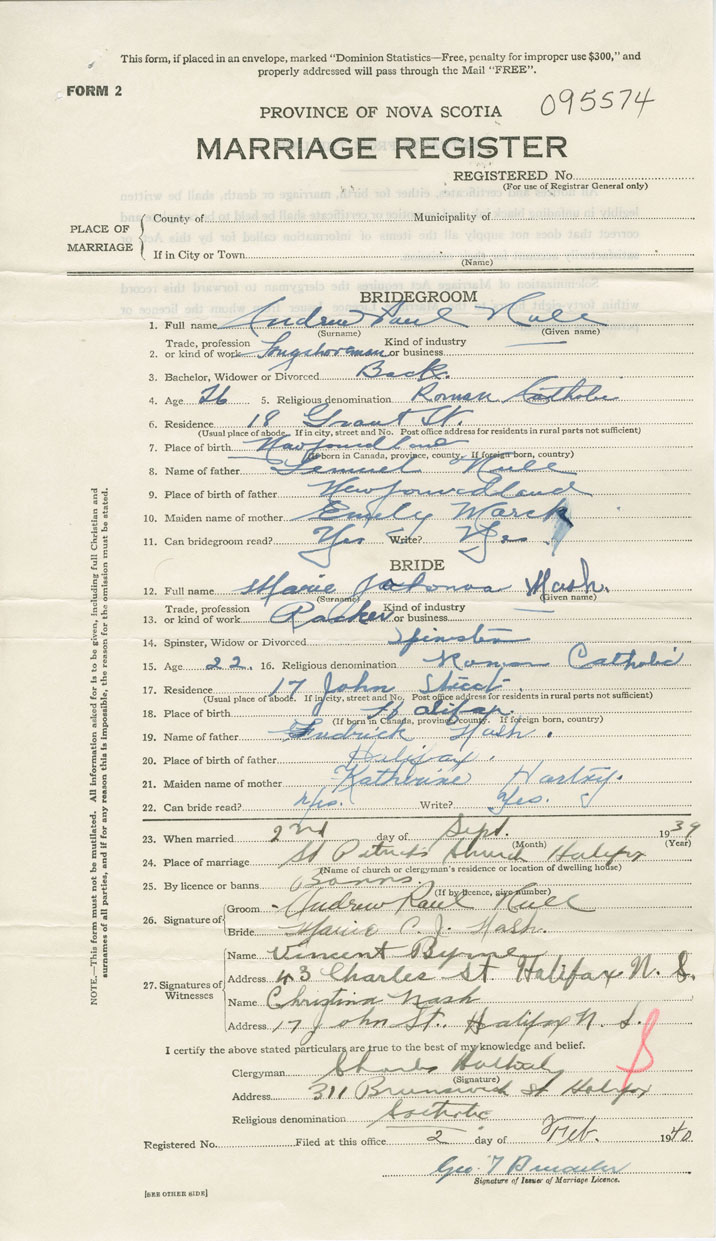 This form, if placed in an envelope, marked "Dominion Statistics—Free, penalty for improper use $300," and
properly addressed will pass through the Mail "FREE".
FORM 2
PROVINCE OF NOVA SCOTIA 095574
MARRIAGE REGISTER
REGISTERED No.
(For use of Registrar General only)
PLACE OF MARRIAGE
County of Municipality of
If in City or Town
(Name)
BRIDEGROOM
1. Full name Andrew Paul Hull
(Surname) (Given name)
Trade, profession Kind of industry
2. or kind of work Longshoreman or business
3. Bachelor, Widower or Divorced Bach.
4. Age 26 5. Religious denomination Roman Catholic
6. Residence 18 Grant St.
(Usual place of abode. If in city, street and No. Post office address for residents in rural parts not sufficient)
7. Place of birth Newfoundland
(If born in Canada, province, county. If foreign born, country)
8. Name of father Lemuel Hull
9. Place of birth of father Newfoundland
10. Maiden name of mother Emily March
11. Can bridegroom read? Yes Write? Yes.
BRIDE
12. Full name Marie Nash.
(Surname) (Given name)
Trade, profession Kind of industry
13. or kind of work Packer or business
14. Spinster, Widow or Divorced Spinster
15. Age 22. 16. Religious denomination Roman Catholic
17. Residence 17 John Street.
(Usual place of abode. If in city, street and No. Post office address for residents in rural parts not sufficient)
18. Place of birth Halifax.
(If born in Canada, province, county. If foreign born, country)
19. Name of father Nash.
20. Place of birth of father Halifax.
21. Maiden name of mother Katherine
22. Can bride read? Yes. Write? Yes.
23. When married 2nd day of Sept. 1939
(Month) (Year)
24. Place of marriage St Patrick's Church Halifax
(Name of church or clergyman's residence or location of dwelling house)
25. By licence or banns Banns
(If by licence, give number)
26. Signature of
Groom Andrew Paul Hull
Bride Marie C. J. Nash.
27. Signatures of Witnesses
Name Vincent Byrne
Address 43 Charles St Halifax N. S.
Name Christina Nash
Address 17 John St. Halifax N. S.
I certify the above stated particulars are true to the best of my knowledge and belief.
Clergyman Charles
(Signature)
Address 311 Brunswick St Halifax
Religious denomination Catholic
Registered No. Filed at this office 2 day of Feb. 1940
Geo. T
Signature of Issuer of Marriage Licence.
[SEE OTHER SIDE]
NOTE.—This form must not be mutilated. All information asked for is to be given, including full Christian and
surnames of all parties, and if for any reason this is impossible, the reason for the omission must be stated.